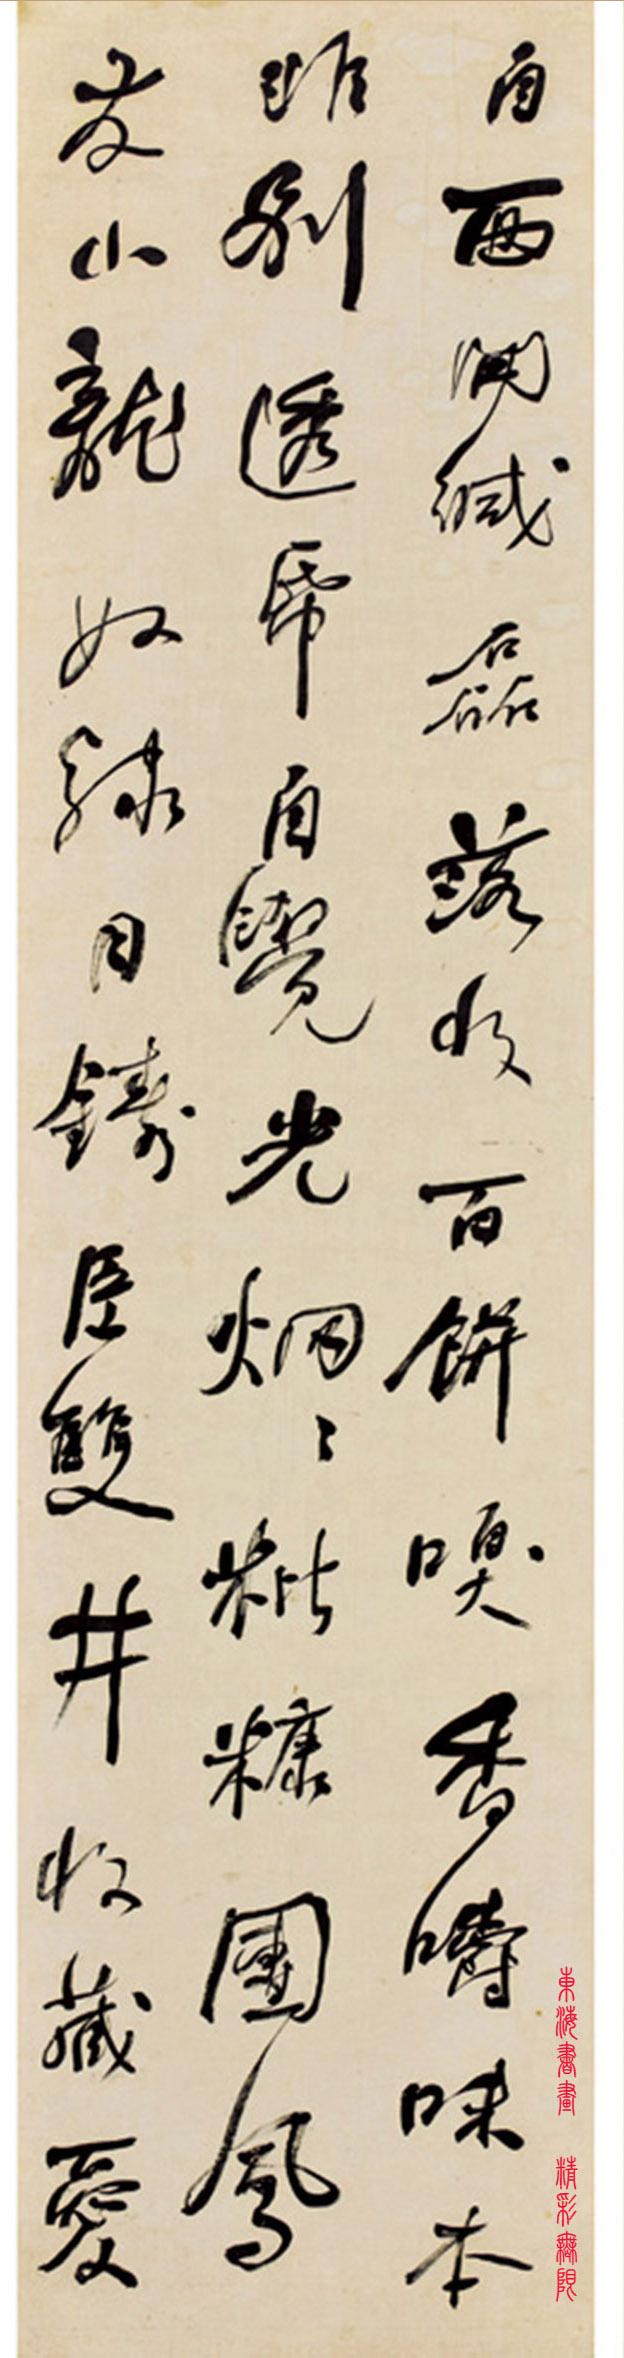 自西開緘磊落收百餅嗅香嚼味本
非別透帋自覺光炯〻粃糠團鳳
友小龍奴隸日鑄臣雙井收藏愛
東海書畫 精彩無限